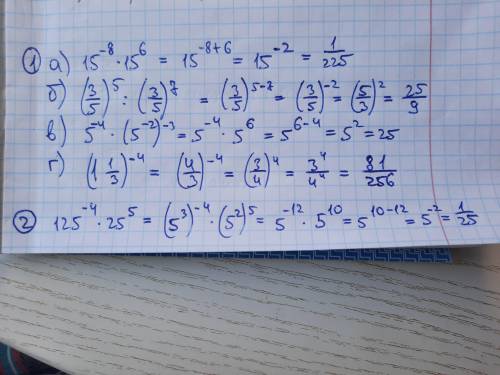 ① а) 15⁻⁸ · 15⁶ = 15⁻⁸⁺⁶ = 15⁻² = 1/225
б) (3/5)⁵ : (3/5)⁷ = (3/5)⁵⁻⁷ = (3/5)⁻² = (5/3)² = 25/9
в) 5⁻⁴ · (5⁻²)⁻³ = 5⁻⁴ · 5⁶ = 5⁶⁻⁴ = 5² = 25
г) (1 1/3)⁻⁴ = (4/3)⁻⁴ = (3/4)⁴ = 3⁴/4⁴ = 81/256
② 125⁻⁴ · 25⁵ = (5³)⁻⁴ · (5²)⁵ = 5⁻¹² · 5¹⁰ = 5¹⁰⁻¹² = 5⁻² = 1/25